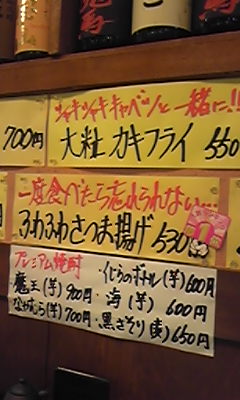 シャキシャキキャベツと一緒に!!
700円
大粒 カキフライ 550
一度食べたら忘れられない…
ふわふわさつま揚げ 530
プレミアム焼酎
・くじらのボトル(芋)600円
・魔王(芋)900円
・海(芋) 600円
・なかむら(芋)700円
・黒さそり(麦)650円